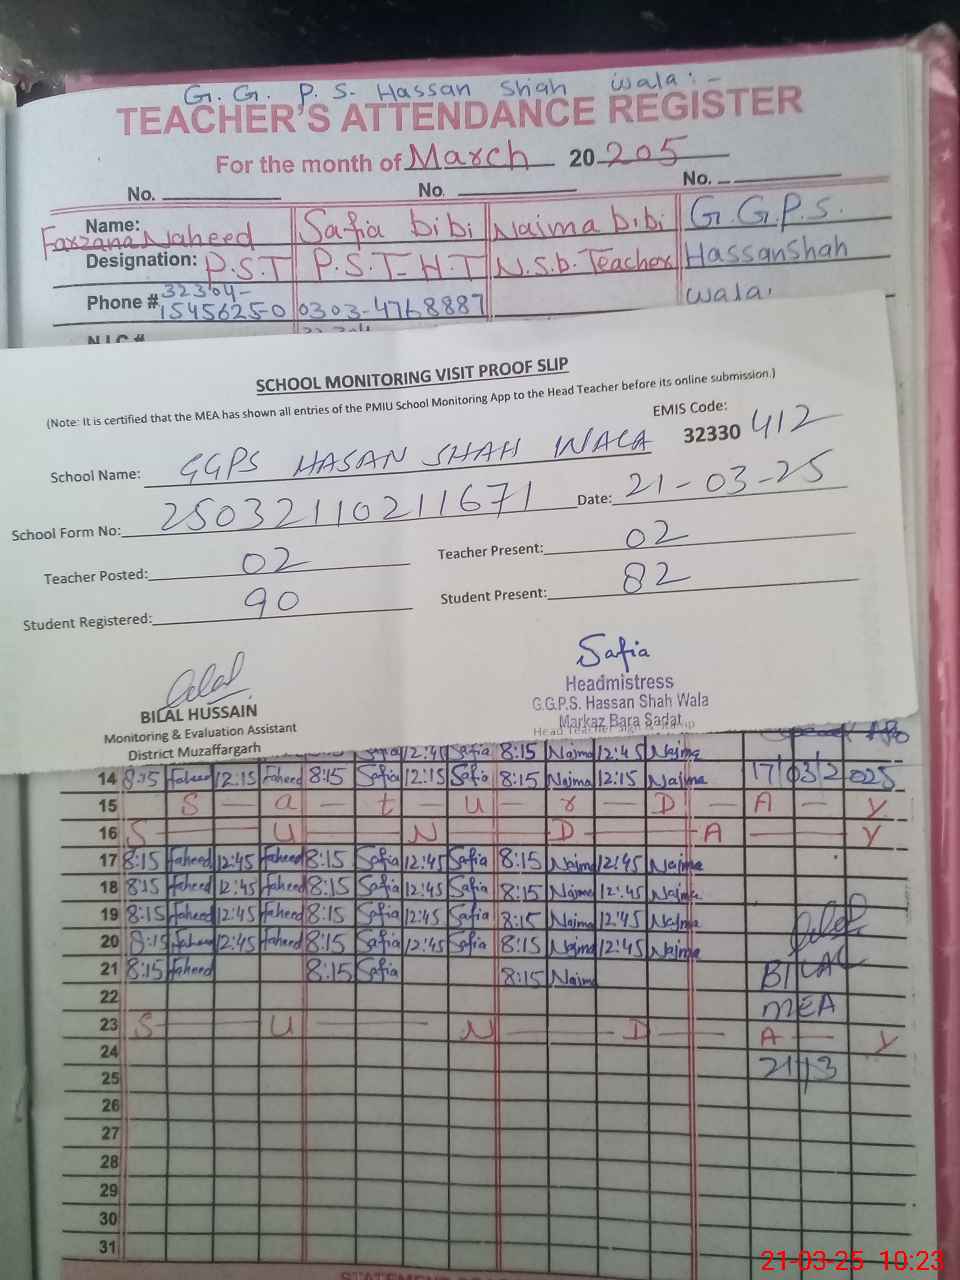 G. G. P. S. Hassan Shah wala:-
TEACHER'S ATTENDANCE REGISTER
For the month of March 20 205
No. No. No.
Name: Farzana Naheed Safia bibi Naima bibi G.G.P.S.
Designation: P.S.T P.S.T-H.T N.S.b. Teacher Hassanshah
Phone # 32304- wala.
1545625-0 0303-4768887
N.I.C #
SCHOOL MONITORING VISIT PROOF SLIP
(Note: It is certified that the MEA has shown all entries of the PMIU School Monitoring App to the Head Teacher before its online submission.)
EMIS Code:
32330 412
School Name: GGPS HASAN SHAH WALA
School Form No: 25032110211671 Date: 21-03-25
Teacher Posted: 02 Teacher Present: 02
Student Registered: 90 Student Present: 82
Safia
BILAL HUSSAIN Headmistress
Monitoring & Evaluation Assistant G.G.P.S. Hassan Shah Wala
District Muzaffargarh Markaz Bara Sadat
Safia 12:45 Safia 8:15 Naima 12:45 Najma
14 8:15 faheed 12:15 faheed 8:15 Safia 12:15 Safia 8:15 Najma 12:15 Najma 17/03/2025
15 S a t u r D A y
16 S U N D A y
17 8:15 faheed 12:45 faheed 8:15 Safia 12:45 Safia 8:15 Najma 12:45 Najma
18 8:15 faheed 12:45 faheed 8:15 Safia 12:45 Safia 8:15 Najma 12:45 Najma
19 8:15 faheed 12:45 faheed 8:15 Safia 12:45 Safia 8:15 Najma 12:45 Najma
20 8:15 faheed 12:45 faheed 8:15 Safia 12:45 Safia 8:15 Najma 12:45 Najma
21 8:15 faheed 8:15 Safia 8:15 Naima BILAL
22 MEA
23 S U N D A y
24 21/3
25
26
27
28
29
30
31
21-03-25 10:23